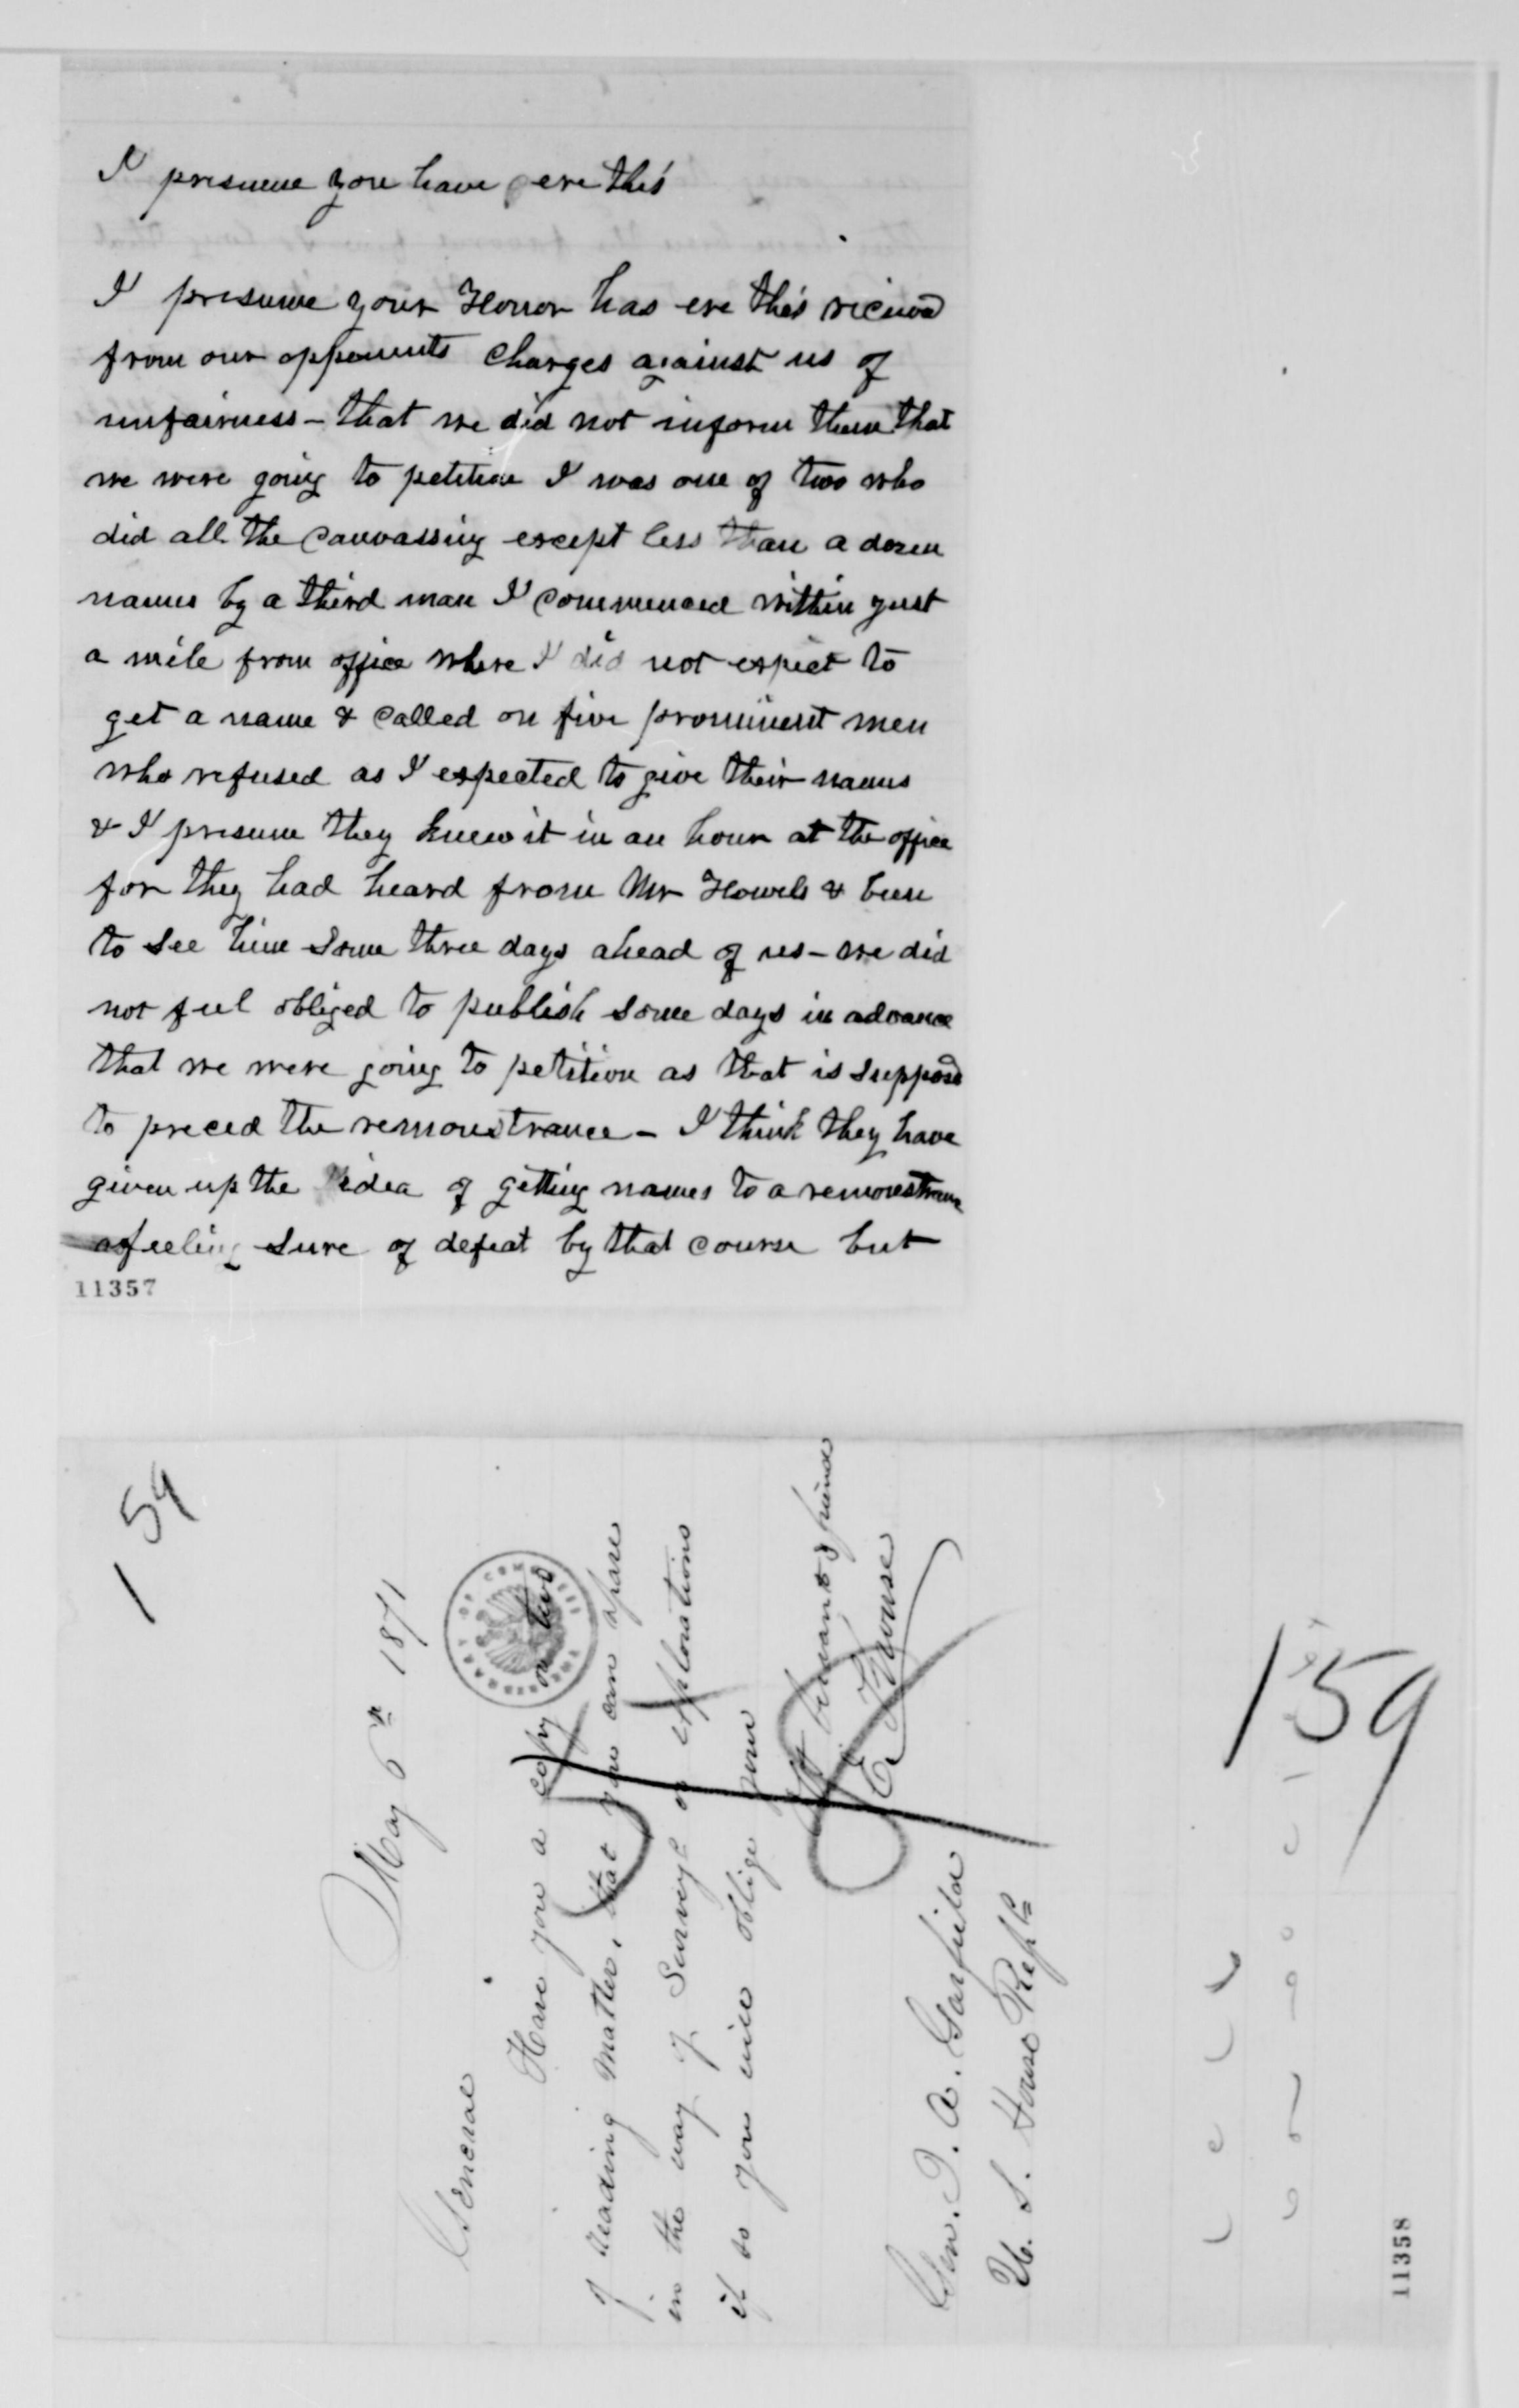 I presume you have ere this
I presume your Honor has ere this recieved
from our opponents charges against us of
unfairness - that we did not inform them that
we were going to petition I was one of two who
did all the canvassing except less than a dozen
names by a third man I commenced within just
a mile from office where I did not expect to
get a name & called on five prominent men
who refused as I expected to give their names
& I presume they knew it in an hour at the office
for they had heard from Mr Howels & been
to see him some three days ahead of us - we did
not feel obliged to publish some days in advance
that we were going to petition as that is supposed
to preced the remonstrance - I think they have
given up the idea of getting names to a remonstrance
feeling sure of defeat by that course but
11357
159
May 6th 1871
General
Have you a copy or two
of reading matter, that you can spare
in the way of Surveys or explorations
if so you will oblige your
Obt servant & friend
E.
Gen. J. A. Garfield
U. S. House Reps
LIBRARY OF CONGRESS
159
11358